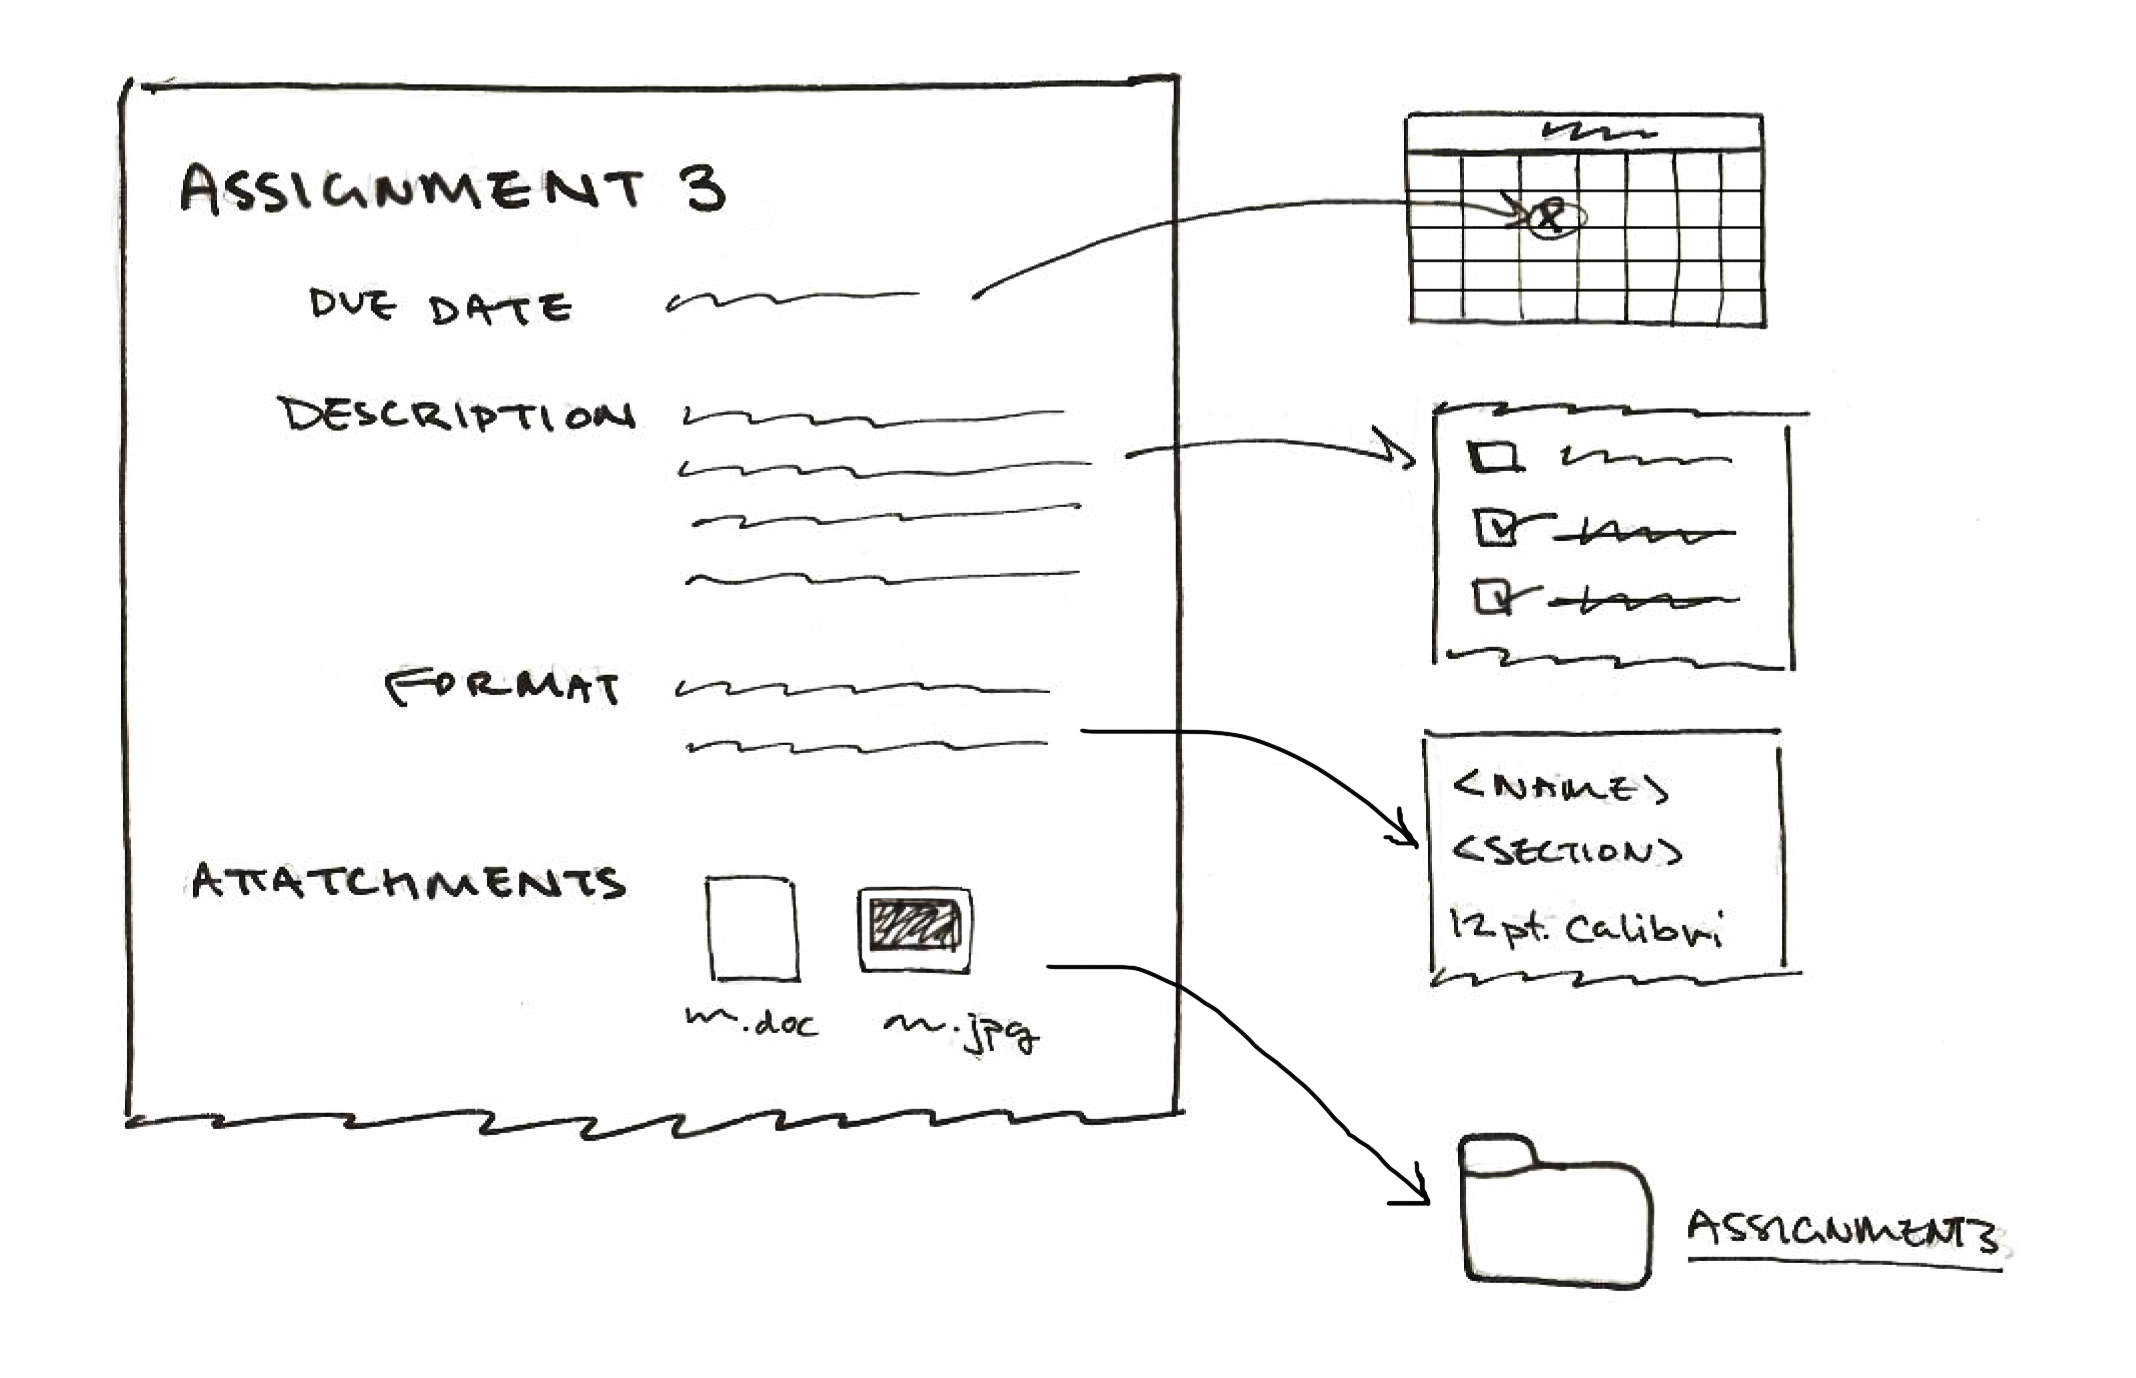 ASSIGNMENT 3
DUE DATE
DESCRIPTION
FORMAT
ATTATCHMENTS
.doc
.jpg
<NAME>
<SECTION>
12pt. Calibri
ASSIGNMENT3